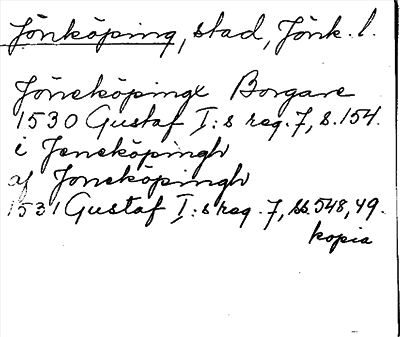 Jönköping, stad, Jönk. l.
Jöneköpinge Borgare
1530 Gustaf I:s reg. 7, s. 154.
i Jeneköpingh
af Joneköpingh
1531 Gustaf I:s reg. 7, ss. 548, 49.
kopia